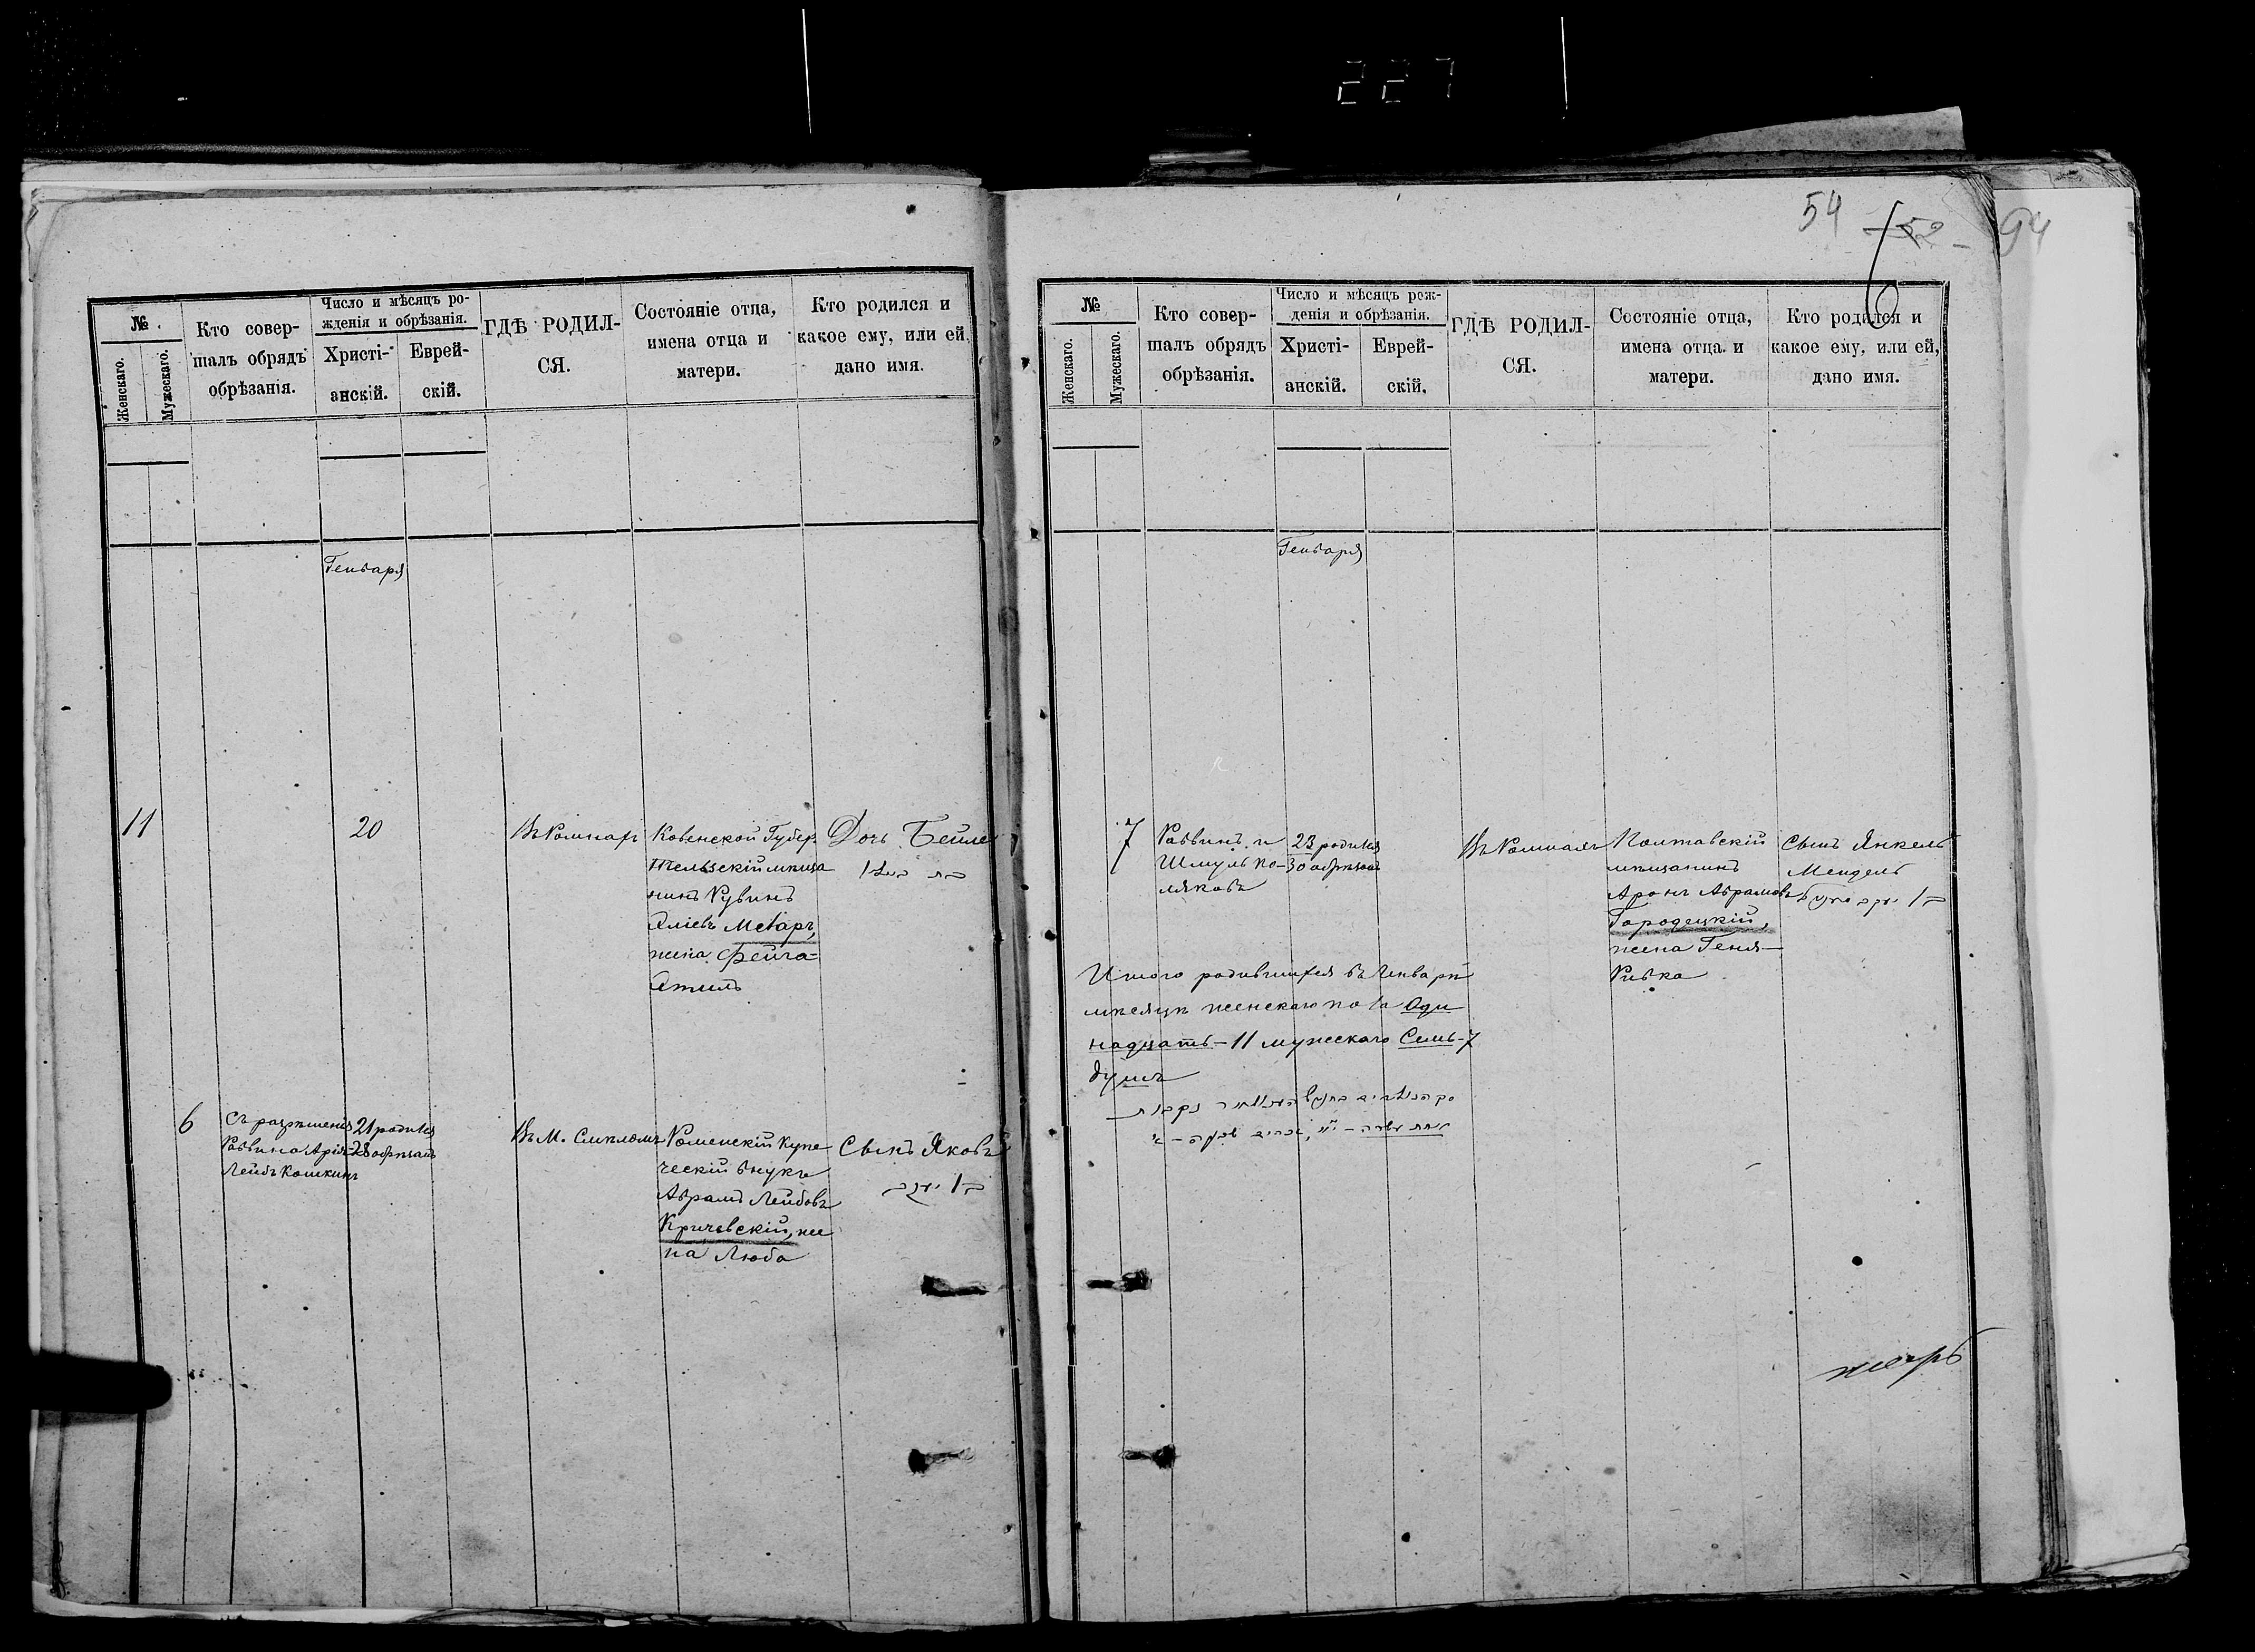 227
54 52 94
№
Женскаго.
Мужескаго.
Кто совер-
шалъ обрядъ
обрѣзанія.
Число и мѣсяцъ ро-
жденія и обрѣзанія.
Христі-
анскій.
Еврей-
скій.
ГДѢ РОДИЛ-
СЯ.
Состояніе отца,
имена отца и
матери.
Кто родился и
какое ему, или ей,
дано имя.
Генваря
11
20
Въ Ромнахъ
Ковенской Губер
Тельзскій мѣща
нинъ Рувинъ
жена Фейга
Дочь Бейле
6
Съ разрѣшенія
Раввина Арія
Лейбъ Кошкинъ
21 родился
28 обрѣзанъ
Въ М. Смѣломъ
Роменскій Купе
ческій внукъ
Абрамъ Лейбовъ
Кричевскій, же
на Люба
Сынъ Яковъ
№
Женскаго.
Мужескаго.
Кто совер-
шалъ обрядъ
обрѣзанія.
Число и мѣсяцъ рож-
денія и обрѣзанія.
Христі-
анскій.
Еврей-
скій.
ГДѢ РОДИЛ-
СЯ.
Состояніе отца,
имена отца и
матери.
Кто родился и
какое ему, или ей,
дано имя.
Генваря
7
Раввинъ и
Шмуль По-
ляковъ
23 родился
30 обрѣзанъ
Въ Ромнахъ
Полтавскій
мѣщанинъ
Аронъ Абрамовъ
Городецкій,
жена Геня-
Ривка
Сынъ Янкель
Мендель
Итого родившихся въ Генварѣ
мѣсяцѣ женскаго пола Оди
надцать - 11 мужескаго Семь - 7
душъ